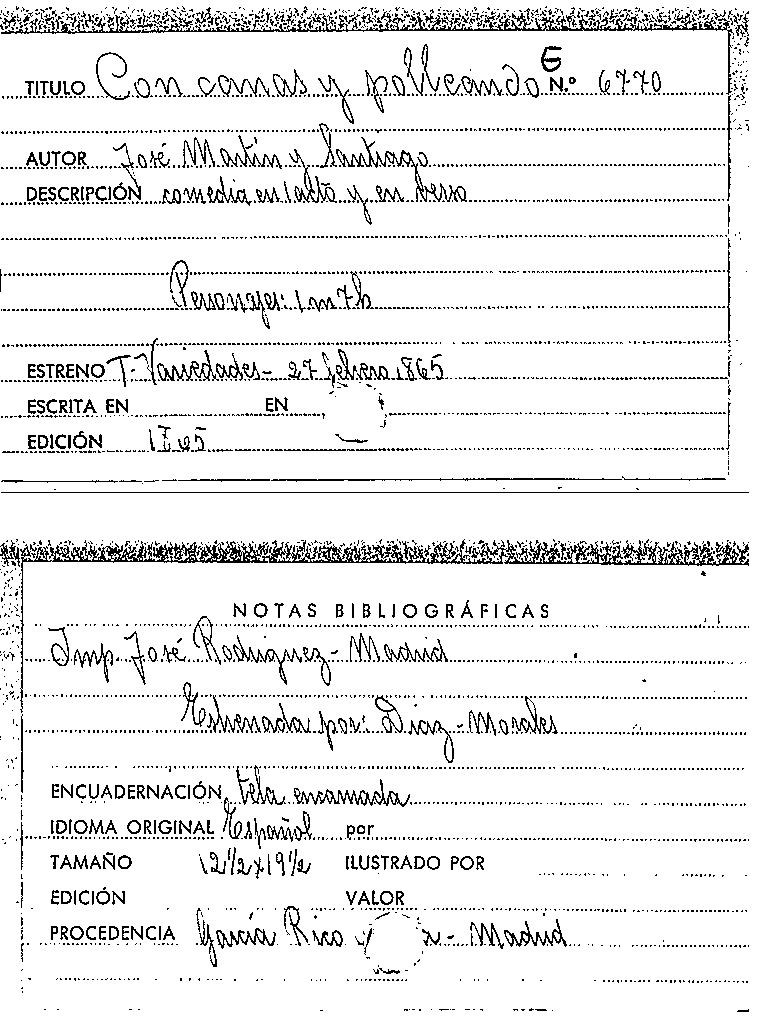 G
TITULO Con canas y polleando N.º 6770
AUTOR José Martín y Santiago
DESCRIPCIÓN comedia en 1 acto y en verso
Personajes: 1 m 7 h
ESTRENO T. Variedades - 27 febrero 1865
ESCRITA EN EN
EDICIÓN 1865
NOTAS BIBLIOGRÁFICAS
Imp. José Rodríguez - Madrid
Estrenada por: Díaz - Morales
ENCUADERNACIÓN tela encarnada
IDIOMA ORIGINAL Español por
TAMAÑO 12 1/2 x 19 1/2 ILUSTRADO POR
EDICIÓN VALOR
PROCEDENCIA García Rico y - Madrid